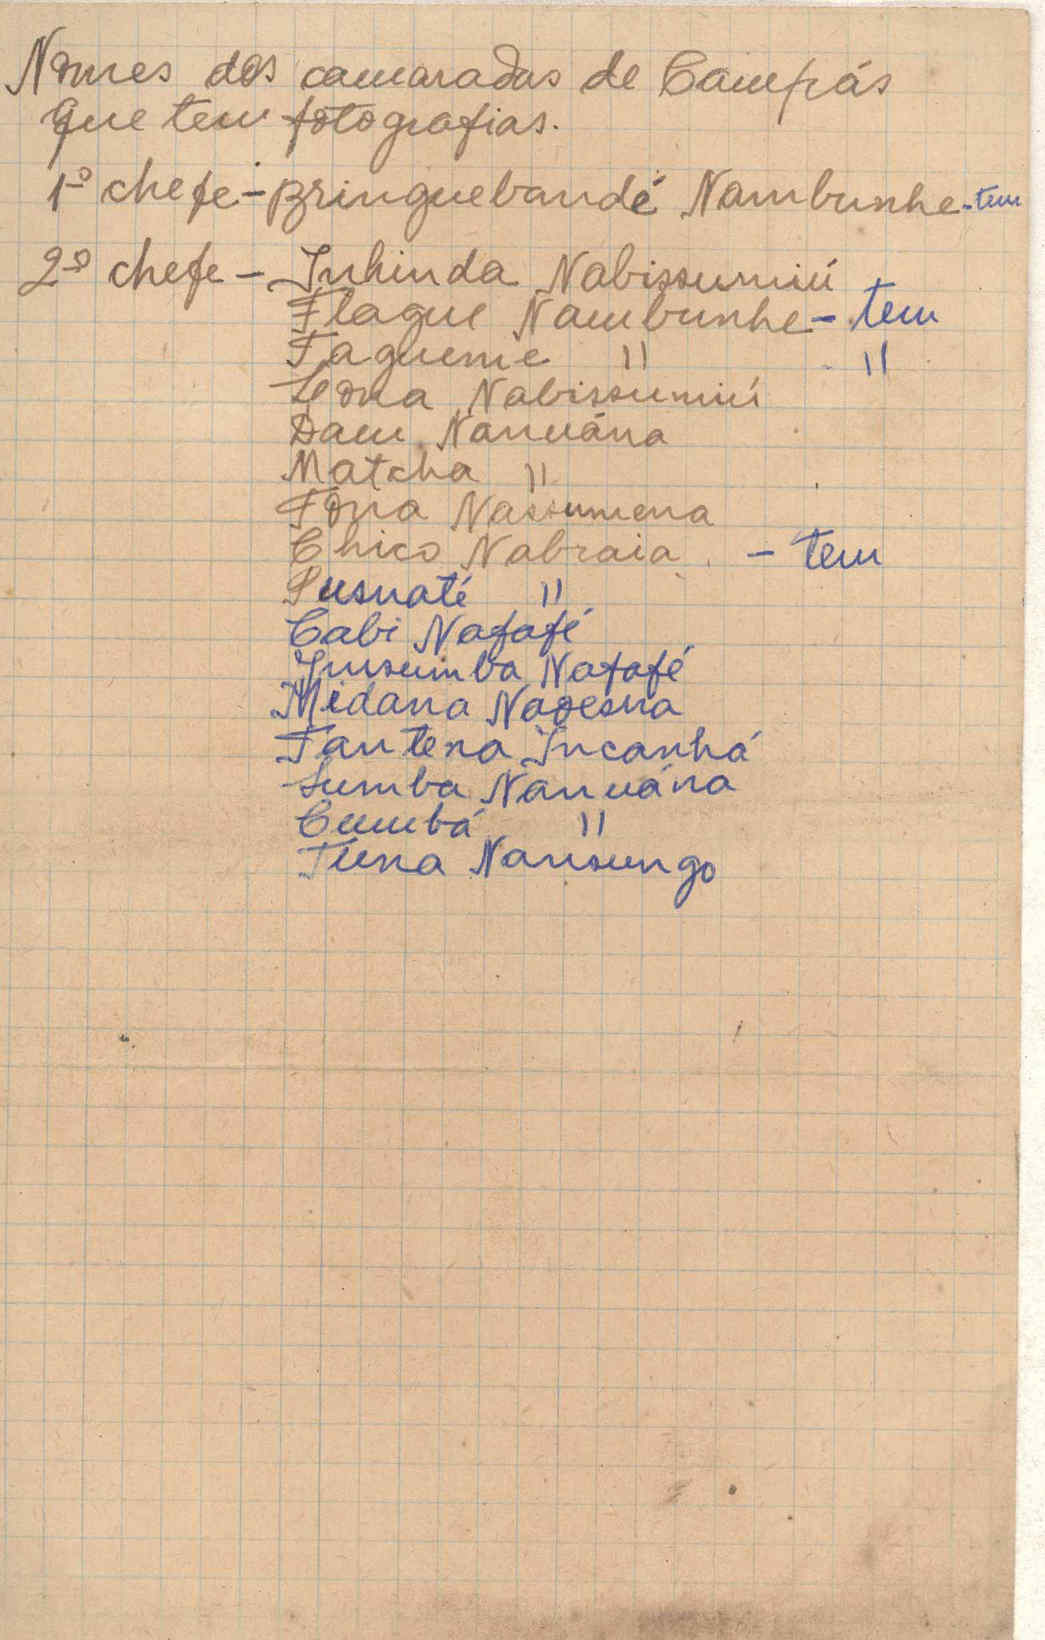 Nomes dos camaradas de Campiás
que tem fotografias.
1º chefe - Bringuebandé Nambunhe - tem
2º chefe - Inhinda Nabissumiú
Flague Nambunhe - tem
Tagueme " "
Lona Nabissumiú
Dam Nanuána
Matcha "
Fona Nassumena
Chico Nabraia - tem
Pusnaté "
Cabi Nafafé
Insumba Nafafé
Midana Naoesna
Tantena Incanhá
Sumba Nanuána
Cumbá "
Tuna Nansungo